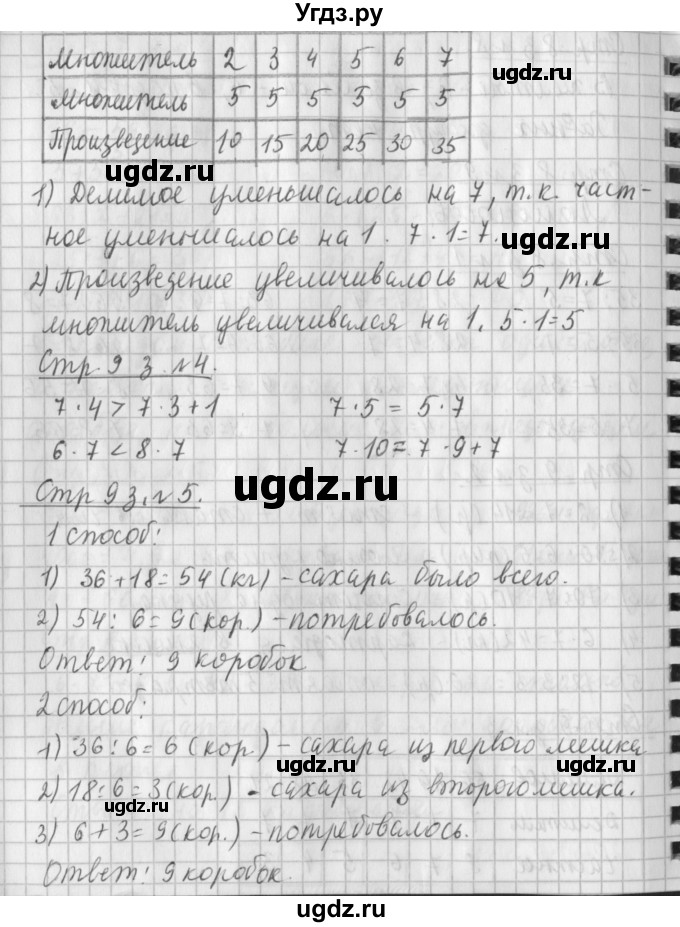 Угдз.ру
Множитель 2 3 4 5 6 7
Множитель 5 5 5 5 5 5
Произведение 10 15 20 25 30 35
1) Делимое уменьшалось на 7, т.к. част-
ное уменьшалось на 1. 7·1=7.
2) Произведение увеличивалось на 5, т.к
множитель увеличивался на 1. 5·1=5
Стр. 9 з. №4.
7·4 > 7·3+1 7·5 = 5·7
6·7 < 8·7 7·10 = 7·9+7
Стр 9 з. №5.
1 способ:
1) 36+18=54 (кг) - сахара было всего.
2) 54:6=9 (кор.) - потребовалось.
Ответ: 9 коробок.
2 способ:
1) 36:6=6 (кор.) - сахара из первого мешка
2) 18:6=3 (кор.) - сахара из второго мешка.
3) 6+3=9 (кор.) - потребовалось.
Ответ: 9 коробок.
ugdz.ru
ugdz.ru
ugdz.ru
ugdz.ru
ugdz.ru
ugdz.ru
ugdz.ru
ugdz.ru
ugdz.ru
ugdz.ru
ugdz.ru
ugdz.ru
ugdz.ru